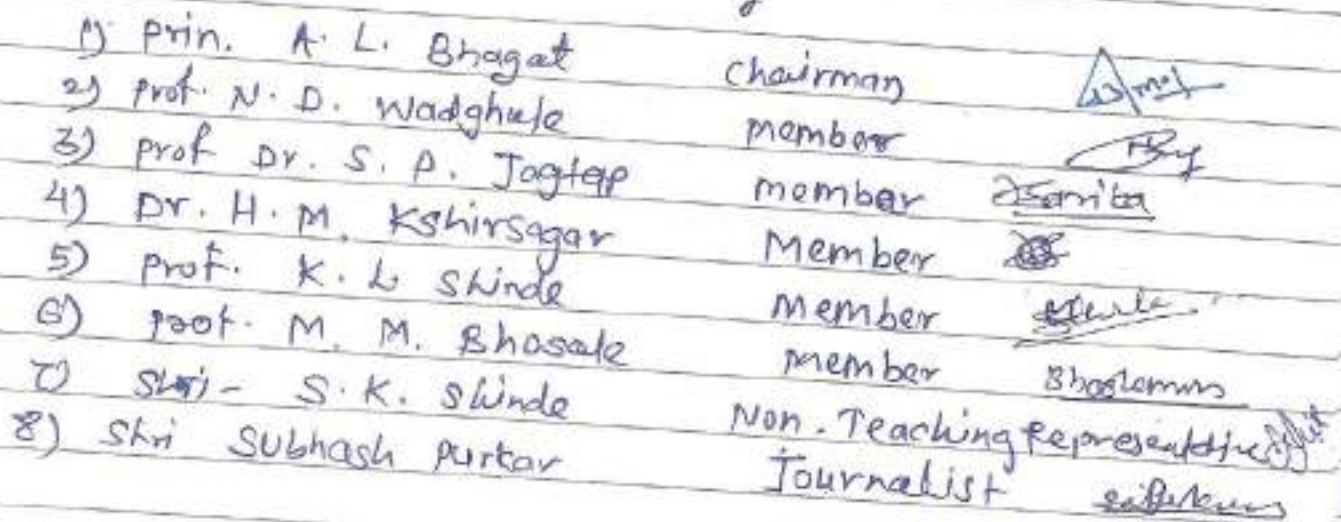 1) Prin. A. L. Bhagat Chairman
2) Prof. N. D. Wadghule member
3) Prof Dr. S. P. Jagtap member
4) Dr. H. M. Kshirsagar Member
5) Prof. K. L Shinde Member
6) Prof. M. M. Bhosale member
7) Shri - S. K. Shinde Non. Teaching Representative
8) Shri Subhash Purkar Journalist